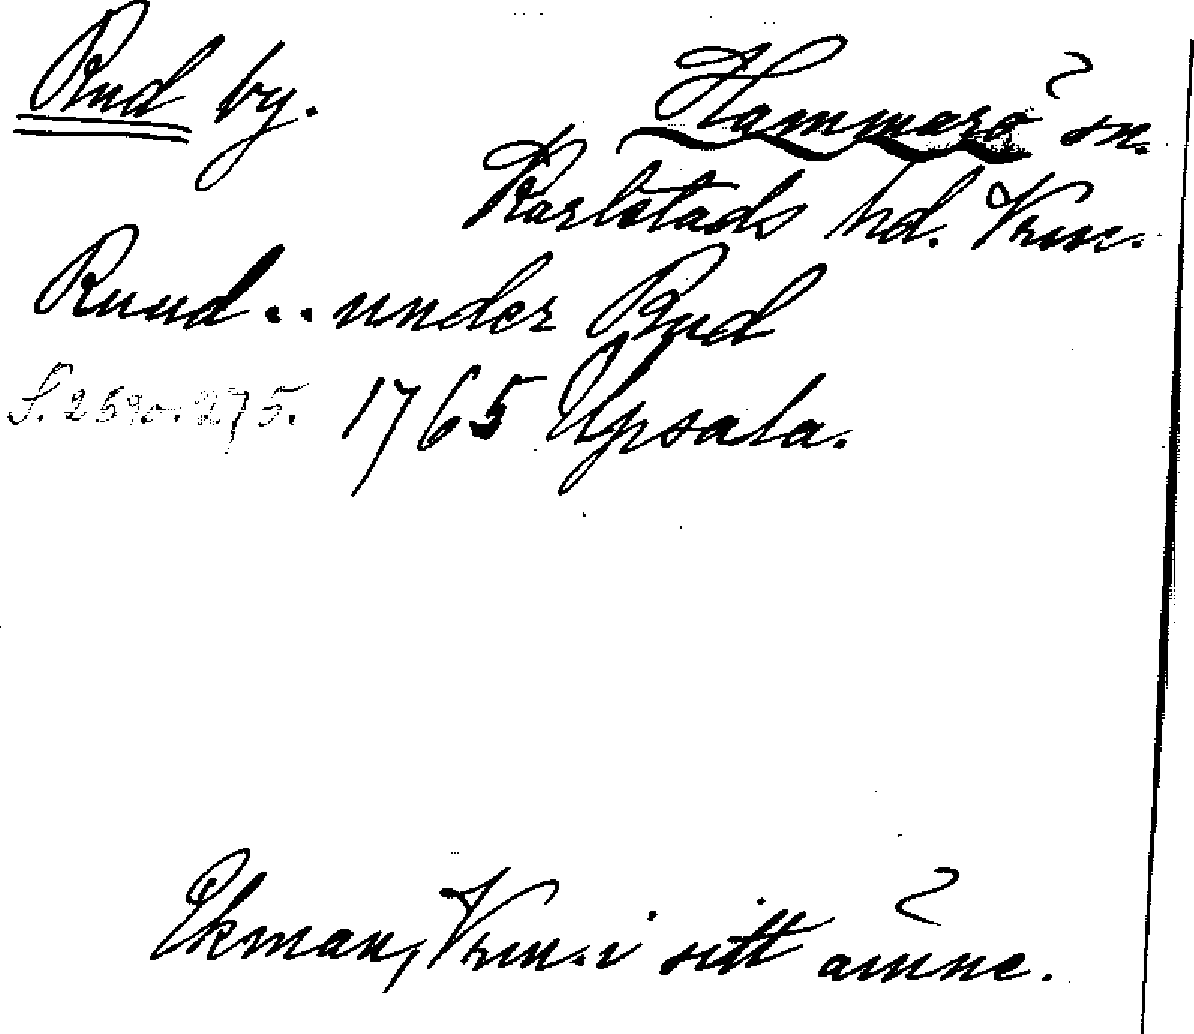 Rud by.
Hammarö sn.
Karlstads hd. Vrm.
Ruud .. under Rud
S. 259 o. 275. 1765 Upsala.
Ekman, Vrm. i sitt ämne.